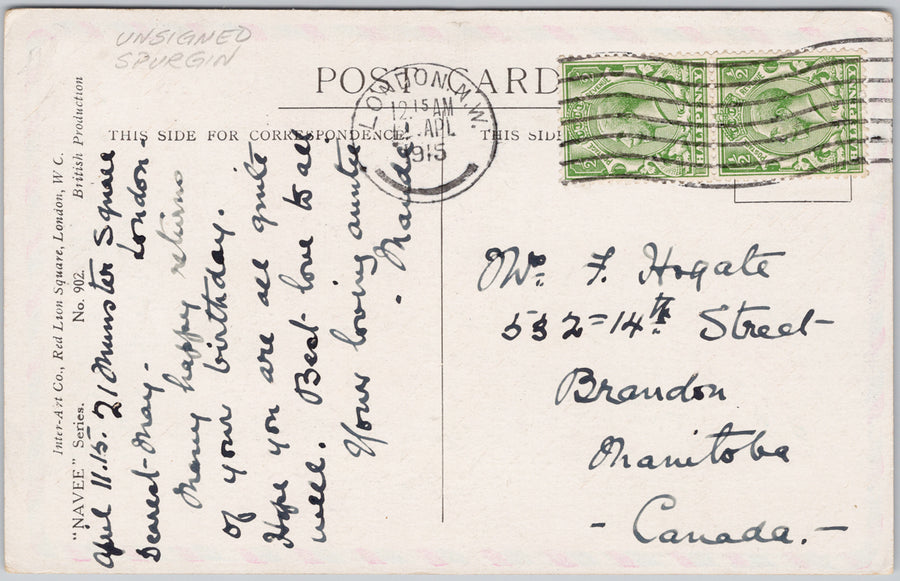 UNSIGNED
SPURGIN
POST CARD
THIS SIDE FOR CORRESPONDENCE.
THIS SIDE
LONDON. N.W.
12.15 AM
APL
1915
Inter-Art Co., Red Lion Square, London, W C.
"NAVEE" Series. No. 902. British Production
April 11.15. 21 Munster Square
London.
Dearest May.
Many happy returns
of your birthday.
Hope you are all quite
well. Best love to all.
Your loving auntie
- Maude
F. Hogate
532=14th Street
Brandon
Manitoba
- Canada. -